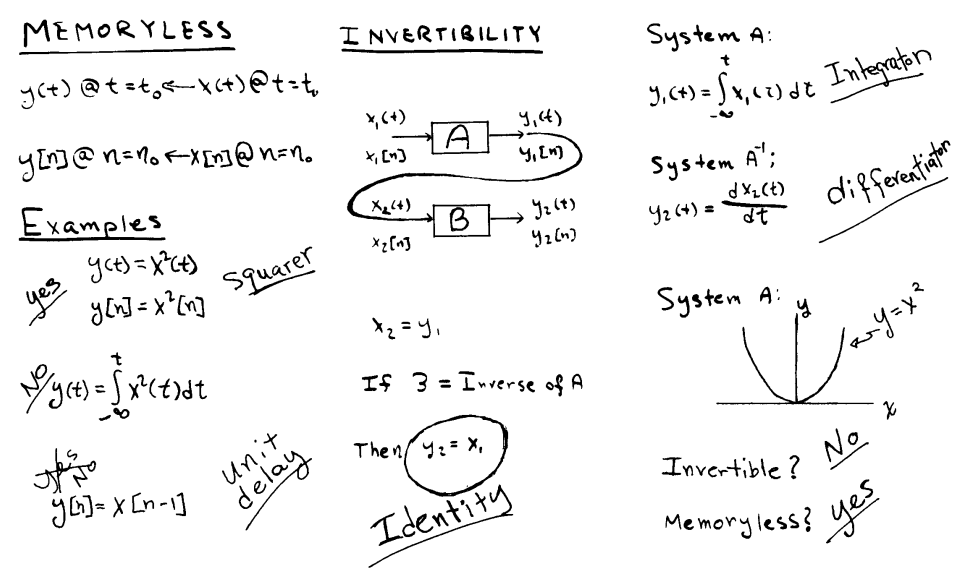 MEMORYLESS
y(t) @ t=t₀ ← x(t) @ t=t₀
y[n] @ n=n₀ ← x[n] @ n=n₀
Examples
yes
y(t) = x²(t)
y[n] = x²[n]
squarer
NO
y(t) = ∫_{-∞}^{t} x²(t)dt
yes
NO
y[n] = x[n-1]
unit
delay
INVERTIBILITY
x₁(t) A y₁(t)
x₁[n] y₁[n]
x₂(t) B y₂(t)
x₂[n] y₂[n]
x₂ = y₁
If 3 = Inverse of A
Then y₂ = x₁
Identity
System A:
y₁(t) = ∫_{-∞}^{t} x₁(τ) dτ
Integrator
System A⁻¹;
y₂(t) = dx₂(t)/dt
differentiator
System A:
y
y=x²
x
Invertible? No
Memoryless? yes